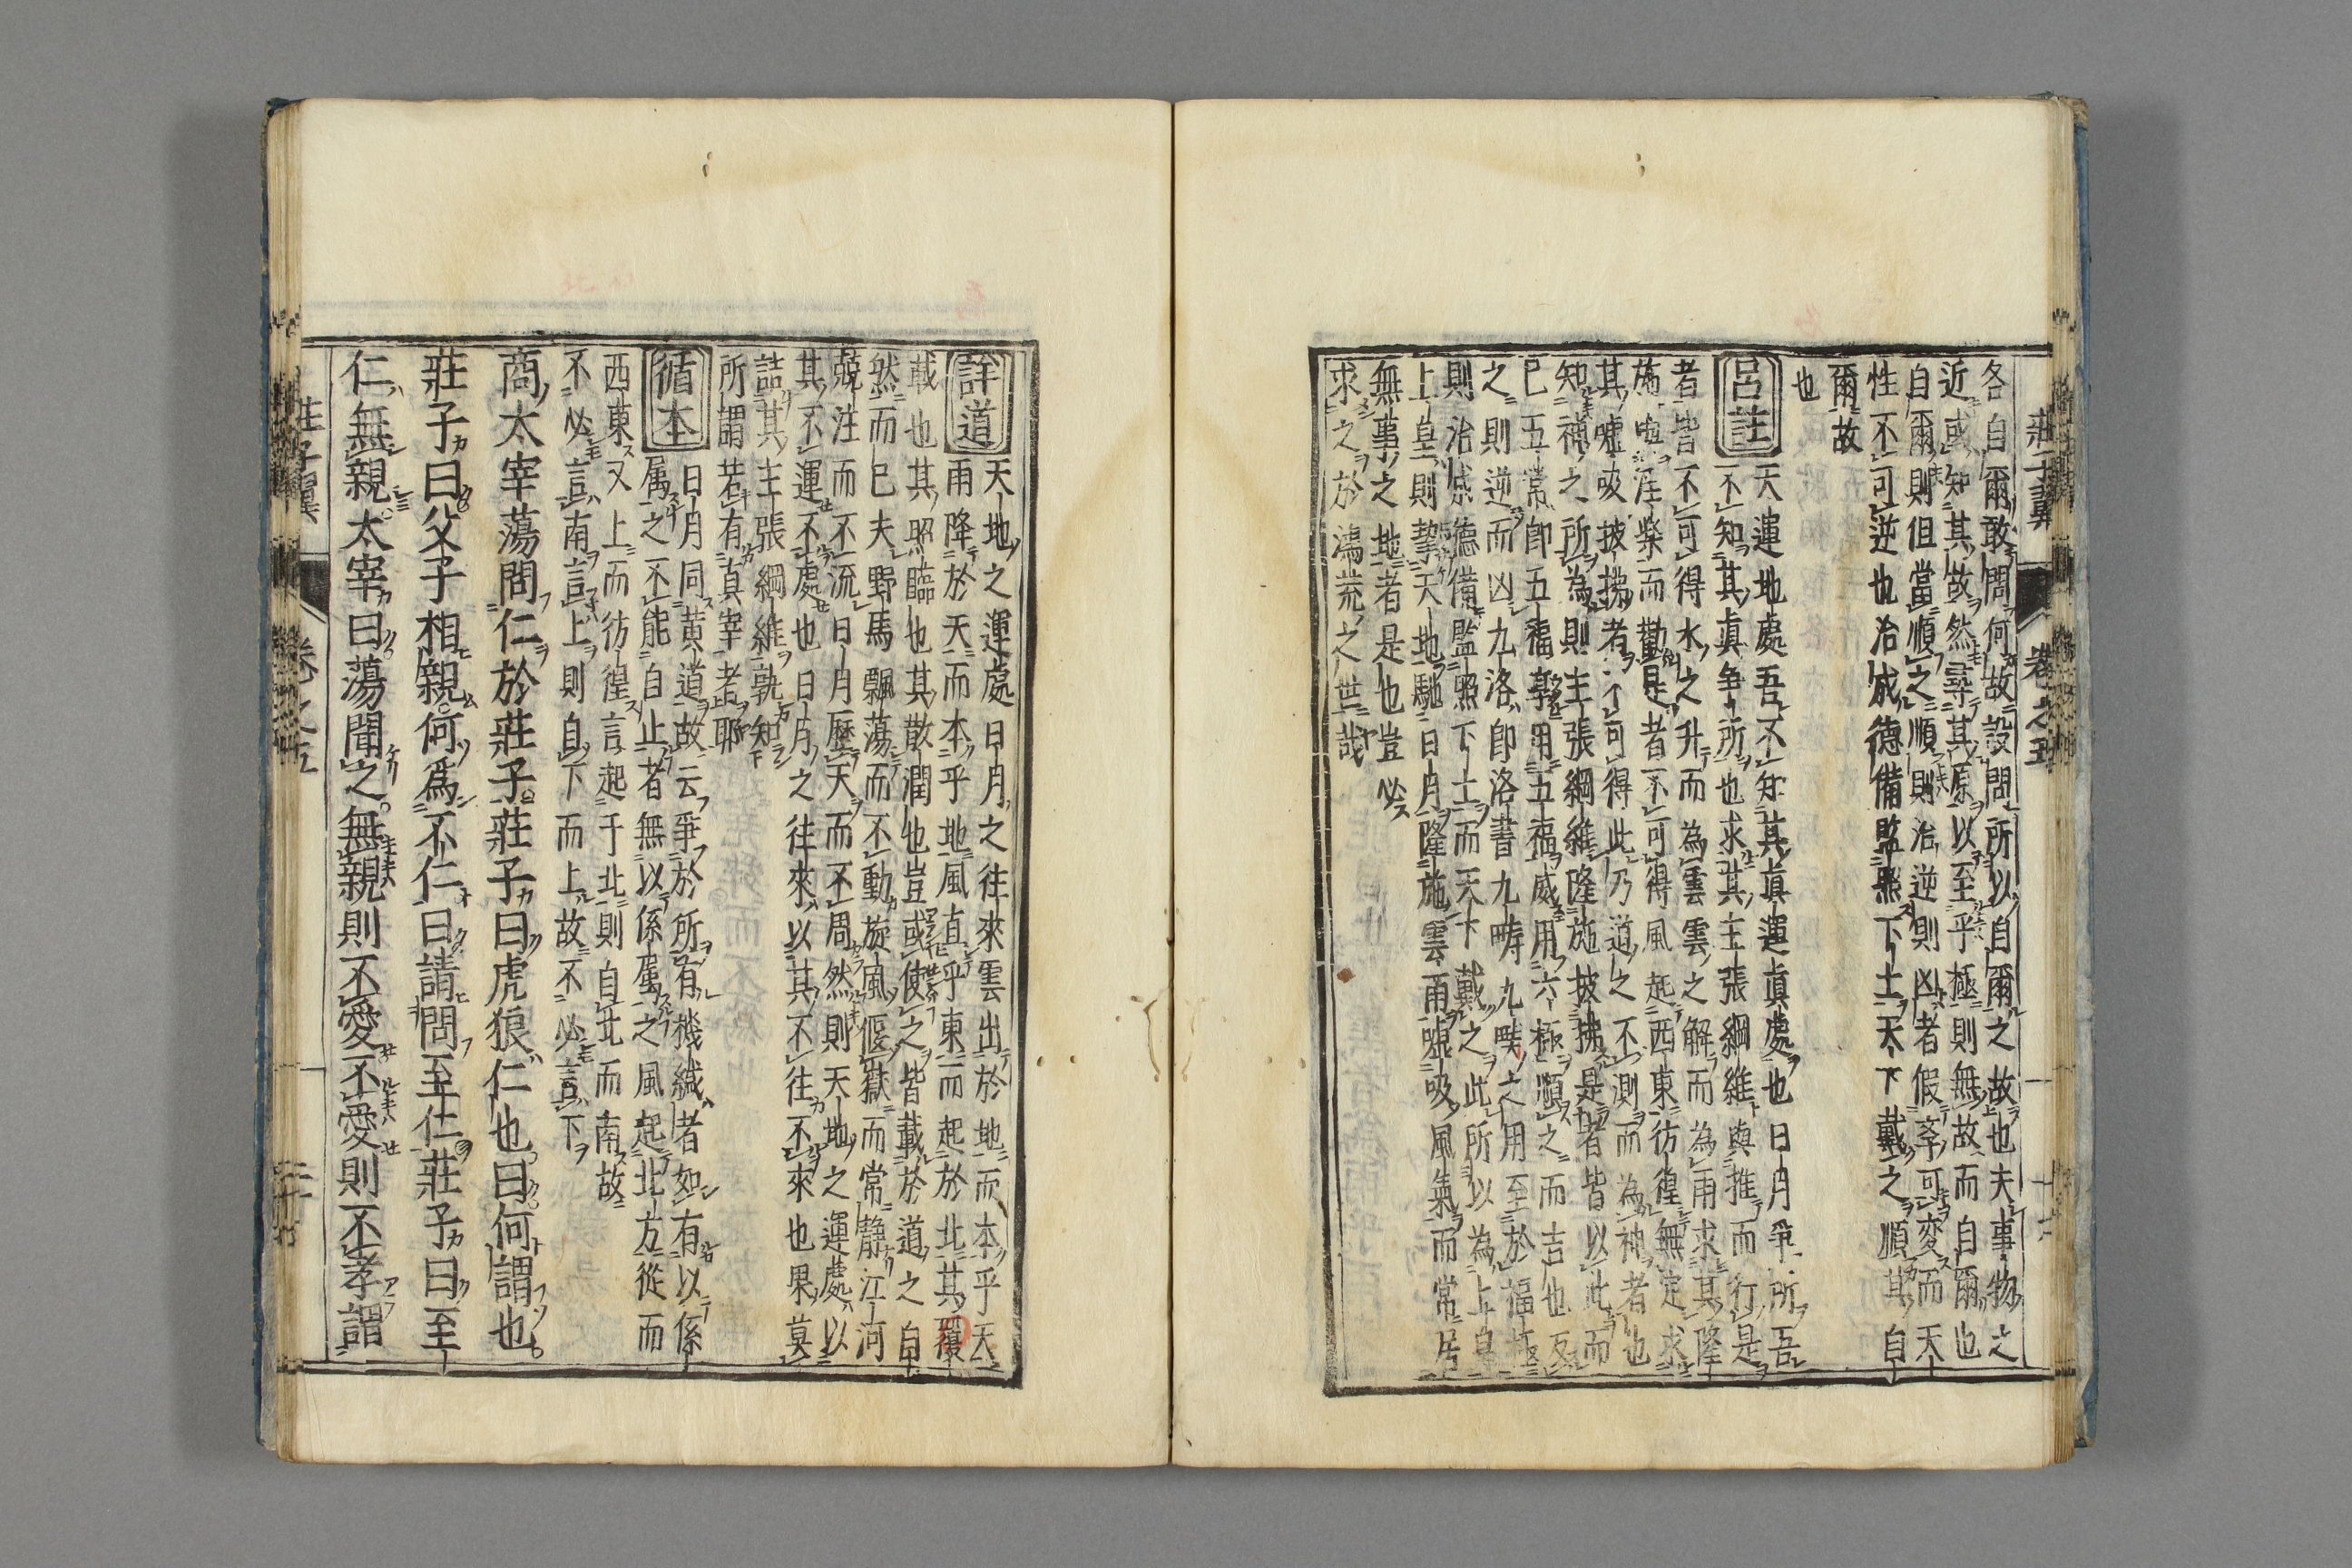 莊子翼 卷之五
各自爾敢問何故設問所以自爾之故也夫事物之
近或知其故然尋其原以至乎極則無故而自爾也
自爾則但當順之順則治逆則凶者假孝可變而天
性不可逆也治成德備監照下土天下戴之順其自
爾故
也
呂註
天運地處吾不知其真運真處也日月爭所吾
不知其真爭所也求其主張綱維與推而行是
者皆不可得水之升而為雲雲之解而為雨求其隆
施淫樂而勸是者不可得風起西東彷徨無定求
其噓吸披拂者不可得此乃道之不測而為神者也
知神之所為則主張綱維隆施披拂是者皆以此而
已五常即五福擊用五福威用六極順之而吉也反
之則逆而凶九洛即洛書九疇九疇之用至於福極
則治成德備監照下土而天下戴之此所以為上皇
上皇則挈天地馳日月隆施雲雨噓吸風氣而常居
無事之地者是也豈必
求之於鴻荒之世哉
詳道
天地之運處日月之往來雲出於地而本乎天
雨降於天而本乎地風直乎東而起於北其覆
載也其照臨也其散潤也豈或使之皆載於道之自
然而已夫野馬飄蕩而不動旋風偃嶽而常靜江河
競注而不流日月歷天而不周然則天地之運處以
其不運不處也日月之往來以其不往不來也果莫
詰其主張綱維孰知
所謂若有真宰者耶
循本
日月同黃道故云爭於所有機緘者如有以係
屬之不能自止者無以係屬之風起北方從而
西東又上而彷徨言起于北則自北而南故
不必言南言上則自下而上故不必言下
商太宰蕩問仁於莊子莊子曰虎狼仁也曰何謂也
莊子曰父子相親何為不仁曰請問至仁莊子曰至
仁無親太宰曰蕩聞之無親則不愛不愛則不孝謂
莊子翼 卷之五